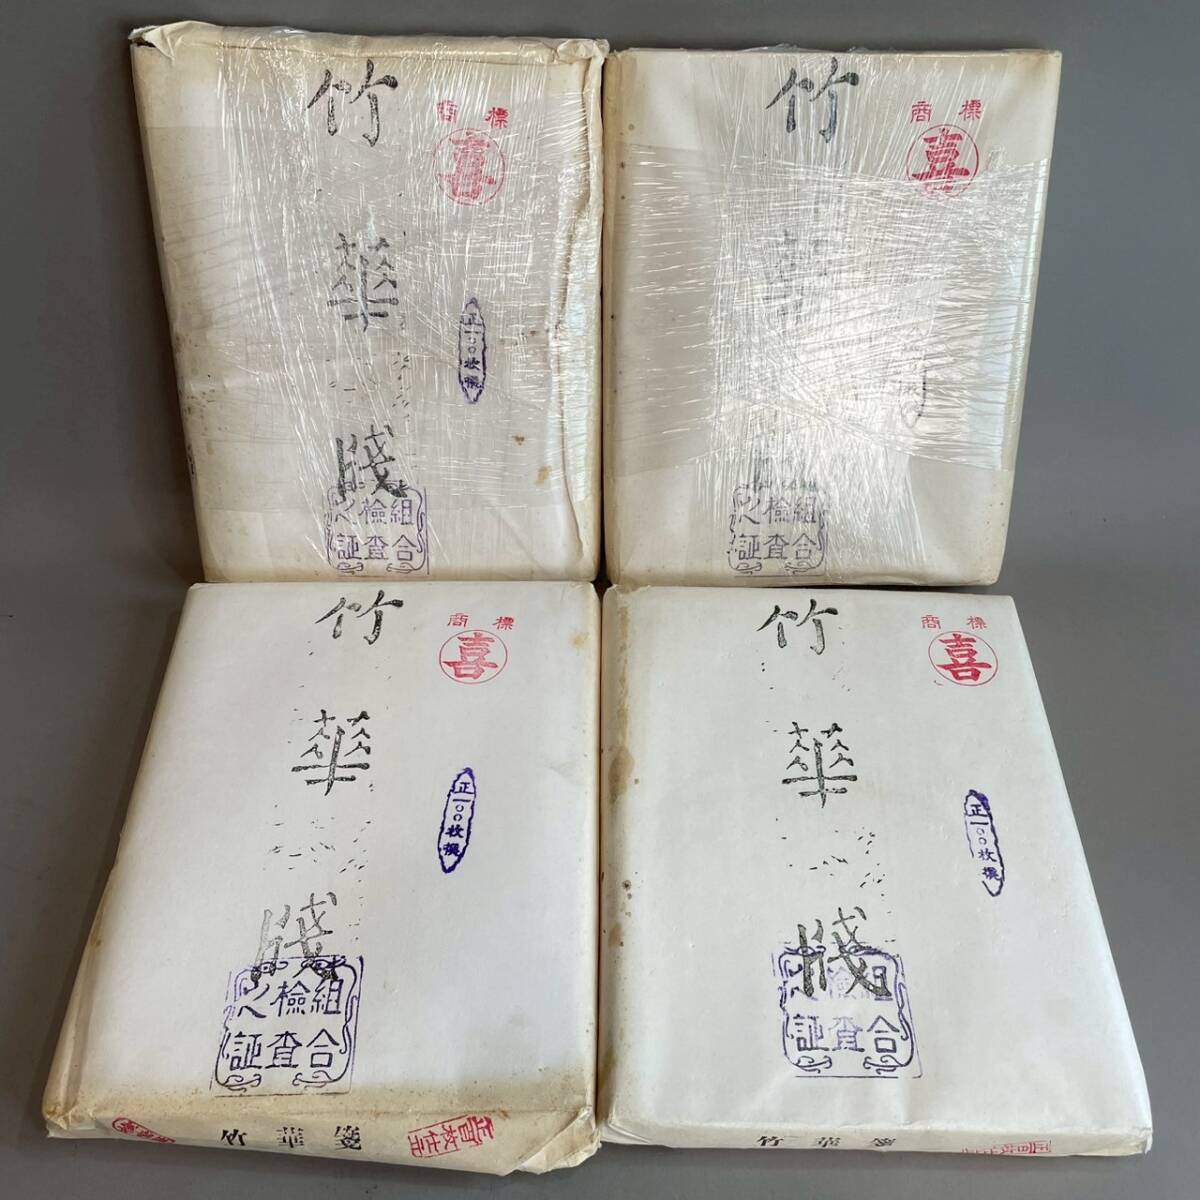 竹華牋
商標
喜
正一〇〇枚撰
組合
検査
之証
竹華牋
商標
喜
組合
検査
之証
竹華牋
商標
喜
正一〇〇枚撰
組合
検査
之証
竹華箋
正百枚仕立
竹華牋
商標
喜
正一〇〇枚撰
組合
検査
之証
竹華箋